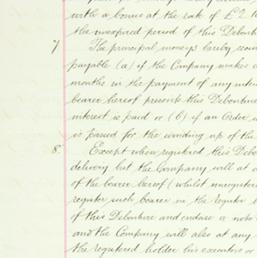 with a bonus at the rate of £2
the unexpired period of this Debentu
7 The principal moneys hereby secur
payable (a) if the Company makes
months in the payment of any inter
bearer hereof presents this Debenture
interest is paid or (b) if an Order
is passed for the winding up of the
8 Except when registered this Deb
delivery but the Company will at
of the bearer hereof (whilst unregistere
register such bearer in the register
of this Debenture and endorse a note
and the Company will also at any
the registered holder his executors or